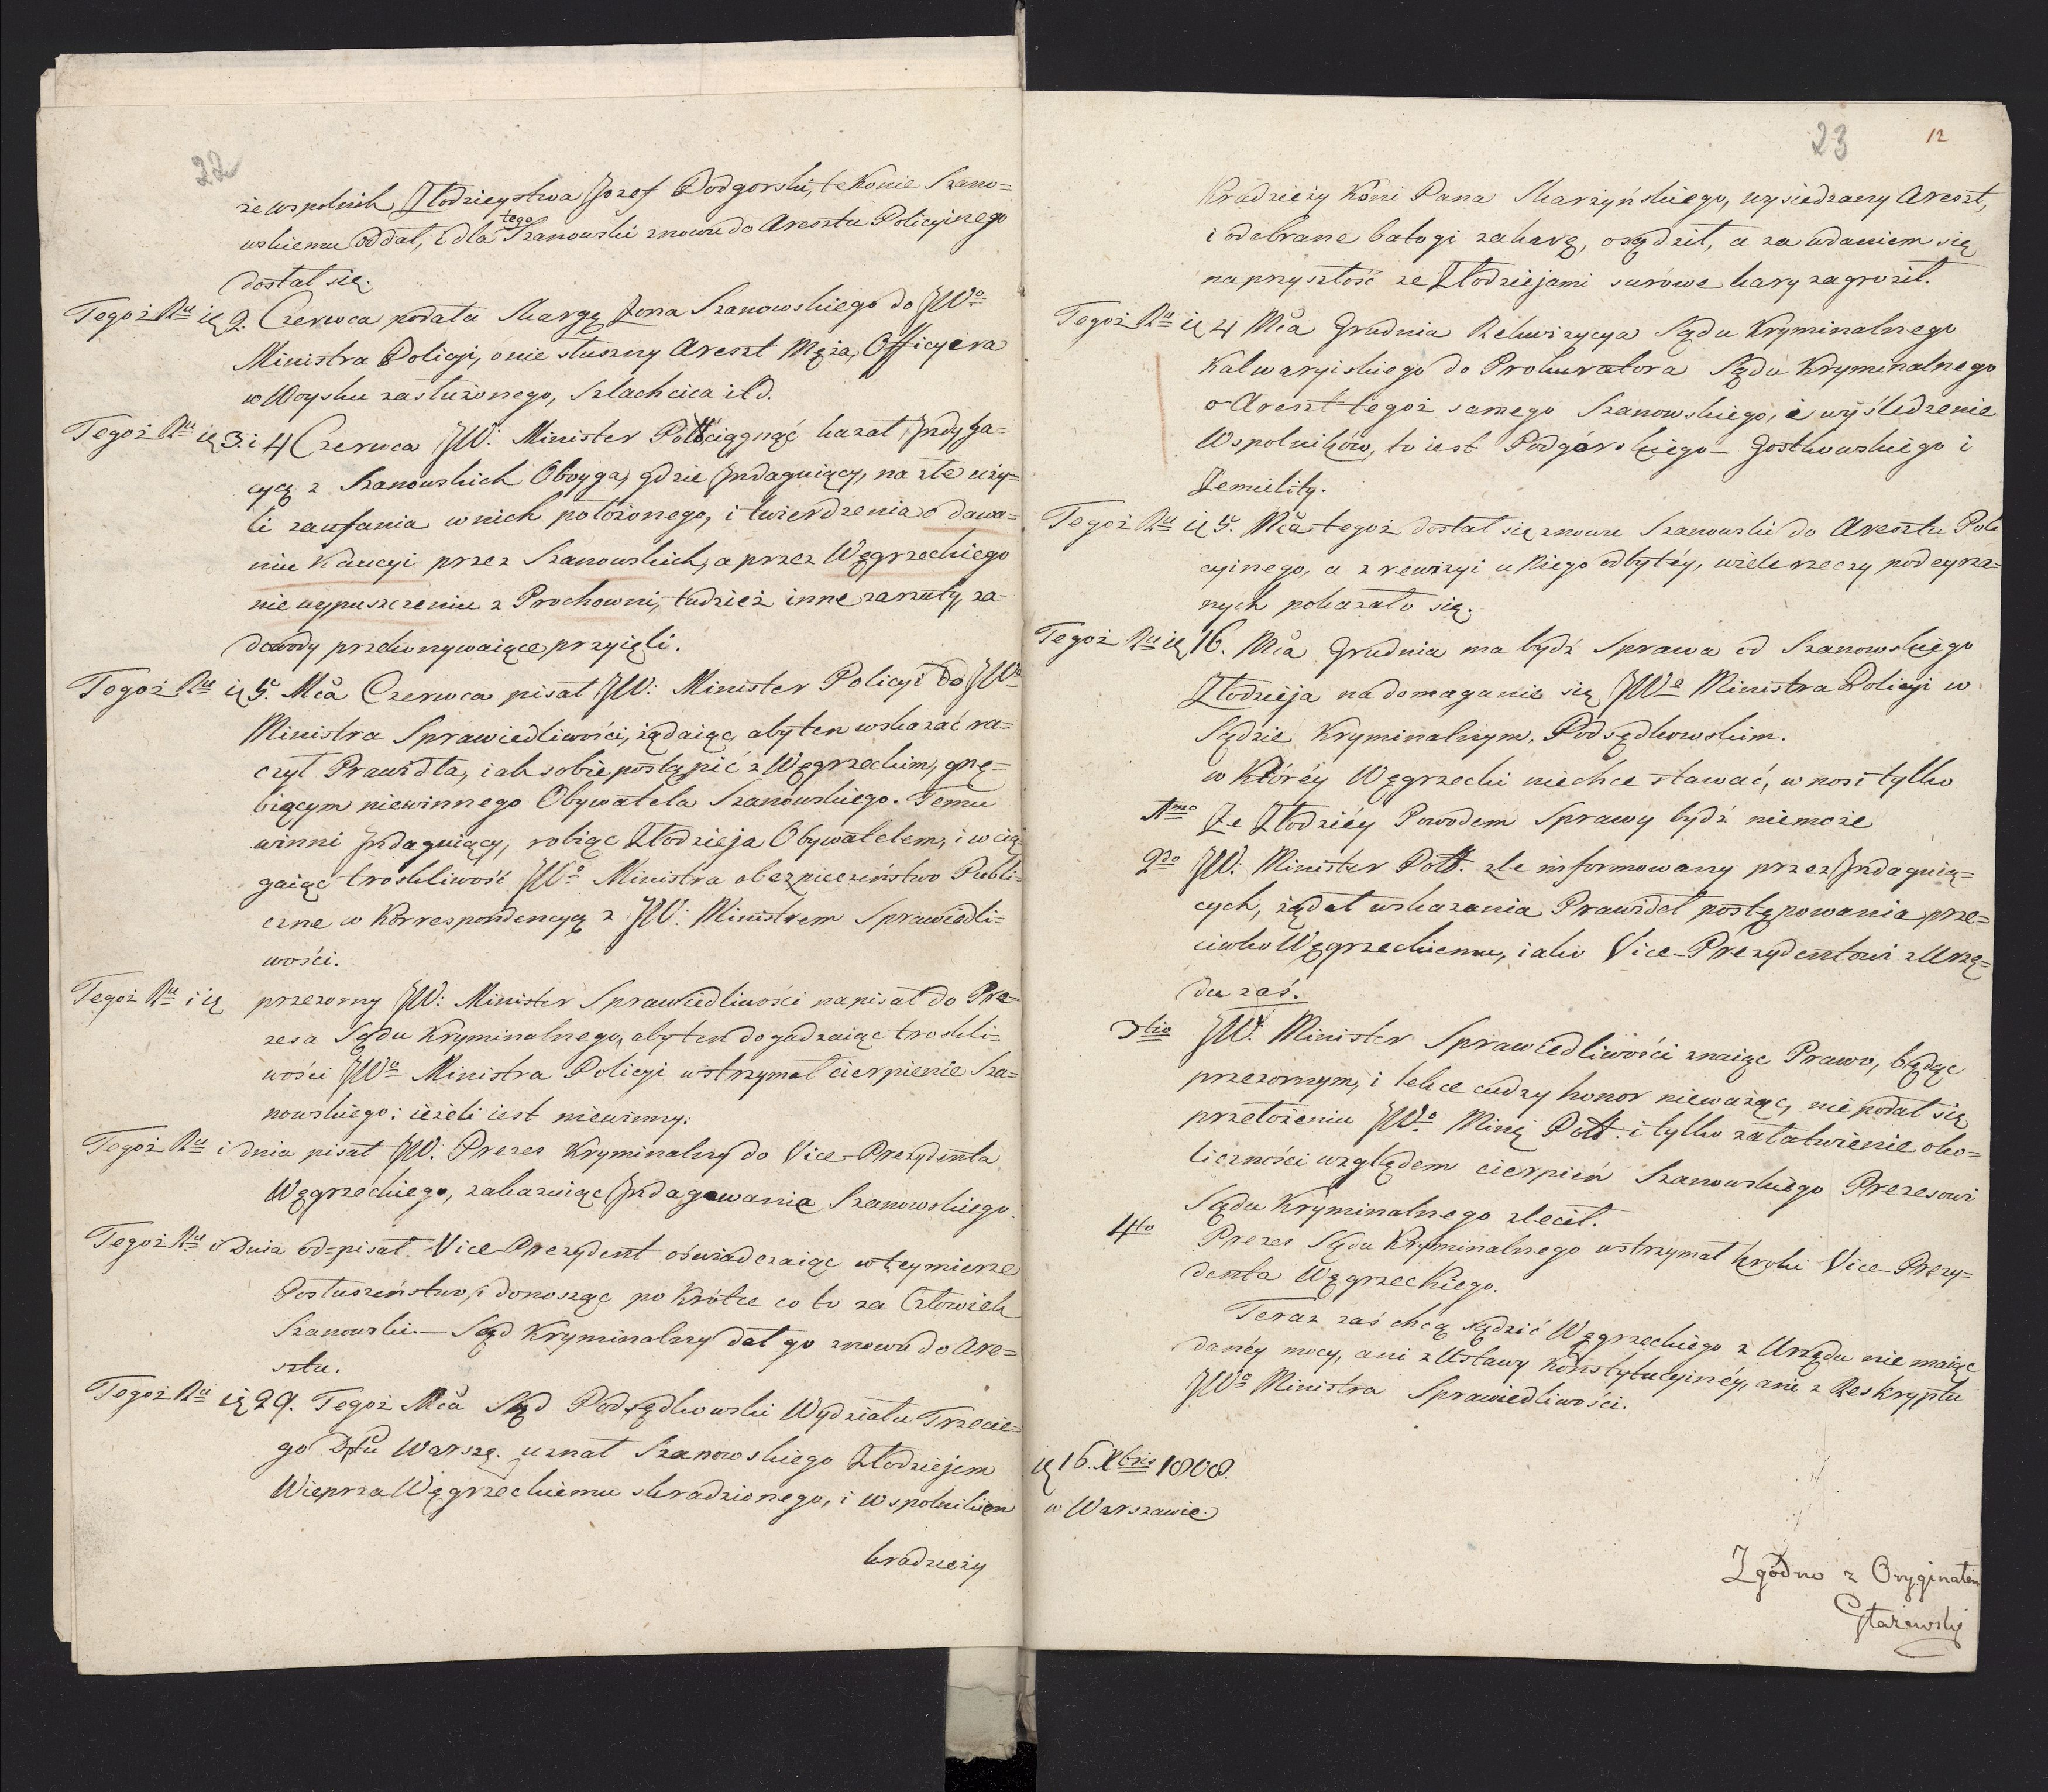 22
że wspolnik Złodzieystwa Jozef Podgorski, te Konie Szano=
wskiemu oddał, i dla tego Szanowski znowu do Aresztu Policyinego
dostał się.
Tegoż Ru ię 2. Czerwca podała Skargę Zona Szanowskiego do JWo
Ministra Policyi, o nie słuszny Areszt Męża, Officyera
w Woysku zasłużonego, Szlachcica itd.
Tegoż Ru ię 3 i 4 Czerwca JW: Minister Poll: ciągnąć kazał Jndyga=
cyą z Szanowskich Oboyga, gdzie Jndaguiący, na złe uży=
li zaufania w nich położonego, i twierdzenia o dawa=
niu Kaucyi przez Szanowskich, a przez Węgrzeckiego
nie wypuszczeniu z Prochowni, tudzież inne zarzuty, za
dowody przekonywaiące przyięli.
Tegoż Ru ię 5. Mca Czerwca pisał JW: Minister Policyi do JWo
Ministra Sprawiedliwości, żądaiąc, aby ten wskazać ra=
czył Prawidła, iak sobie postąpić z Węgrzeckim, gnę=
biącym niewinnego Obywatela Szanowskiego. Temu
winni Jndaguiący, robiąc Złodzieja Obywatelem, i wcią
gaiąc troskliwość JWo Ministra o bezpieczeństwo Publi=
czne w Korrespondencyą z JW: Ministrem Sprawiedli=
wości.
Tegoż Ru i ię przezorny JW: Minister Sprawiedliwości napisał do Pre=
zesa Sądu Kryminalnego, aby ten dogadzaiąc troskli=
wości JWo Ministra Policyi wstrzymał cierpienie Sza=
nowskiego: ieżeli iest niewinny:
Tegoż Ru i dnia pisał JW: Prezes Kryminalny do Vice-Prezydenta
Węgrzeckiego, zakazuiąc Jndagowania Szanowskiego.
Tegoż Ru i Dnia od=pisał Vice-Prezydent oświadczaiąc w tey mierze
Posłuszeństwo, i donosząc po Krótce co to za Człowiek
Szanowski. — Sąd Kryminalny dał go znowu do Are=
sztu.
Tegoż Ru ię 29. Tegoż Mca Sąd Podsędkowski Wydziału Trzecie=
go Dptu Warszę. uznał Szanowskiego Złodziejem
Wieprza Węgrzeckiemu skradzionego, i Wspolnikiem
kradzieży
23
12
Kradzieży Koni Pana Skarzyńskiego, wysiedzany Areszt,
i odebrane batogi za karę, osądził, a za udaniem się
na przyszłość ze Złodziejami surówe kary zagroził.
Tegoż Ru ię 4 Mca Grudnia Rekwizycya Sądu Kryminalnego
Kalwaryiskiego do Prokuratora Sądu Kryminalnego
o Areszt tegoż samego Szanowskiego, i wyśledzenie
Wspolników, to iest Podgórskiego – Gostkowskiego i
Jemielity.
Tegoż Ru ię 5. Mca tegoż dostał się znowu Szanowski do Aresztu Poli
cyinego, a z rewizyi u Niego odbytéy, wiele rzeczy podeyrza=
nych pokazało się.
Tegoż Ru ię 16. Mca Grudnia ma bydź Sprawa od Szanowskiego
Złodzieja na domaganie się JWo Ministra Policyi w
Sądzie Kryminalnym, Podsędkowskim.
w Któréy Węgrzecki niechce stawać, wnosi tylko
1mo Ze Złodziéy Powodem Sprawy bydź niemoże
2do JW: Minister Poll. źle informowany przez Jndaguią=
cych, żądał wskazania Prawideł postępowania prze=
ciwko Węgrzeckiemu, iako Vice-Prezydentowi z Urzę=
du zaś.
3tio JW. Minister Sprawiedliwości znaiąc Prawo, będąc
przezornym, i lekce cudzy honor nieważąc, nie podał się
przełożeniu JWo Minię Poll. i tylko załatwienie oko=
liczności względem cierpień Szanowskiego Prezesowi
Sądu Kryminalnego zlecił.
4to Prezes Sądu Kryminalnego wstrzymał kroki Vice-Prezy=
denta Węgrzeckiego.
Teraz zaś chcą sądzić Węgrzeckiego z Urzędu nie maiąc
danéy mocy, ani z Ustawy Konstytucyinéy, ani z Reskryptu
JWo Ministra Sprawiedliwości.
ię 16. Xbris 1808.
w Warszawie.
Zgodno z Oryginałem